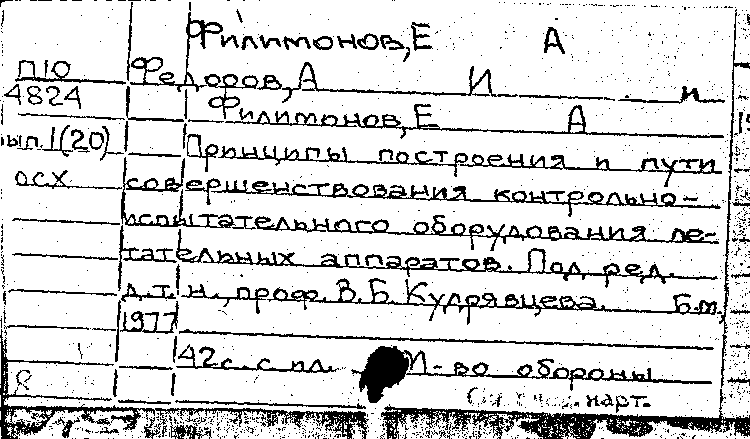 Филимонов, Е А
П10 Федоров, А И и
4824 Филимонов, Е А
вып. 1(20) Принципы построения и пути
ОСХ совершенствования контрольно-
испытательного оборудования ле-
тательных аппаратов. Под ред.
д.т.н., проф. В.Б. Кудрявцева. Б.м.,
1977
42 с. с ил. М-во обороны
карт.